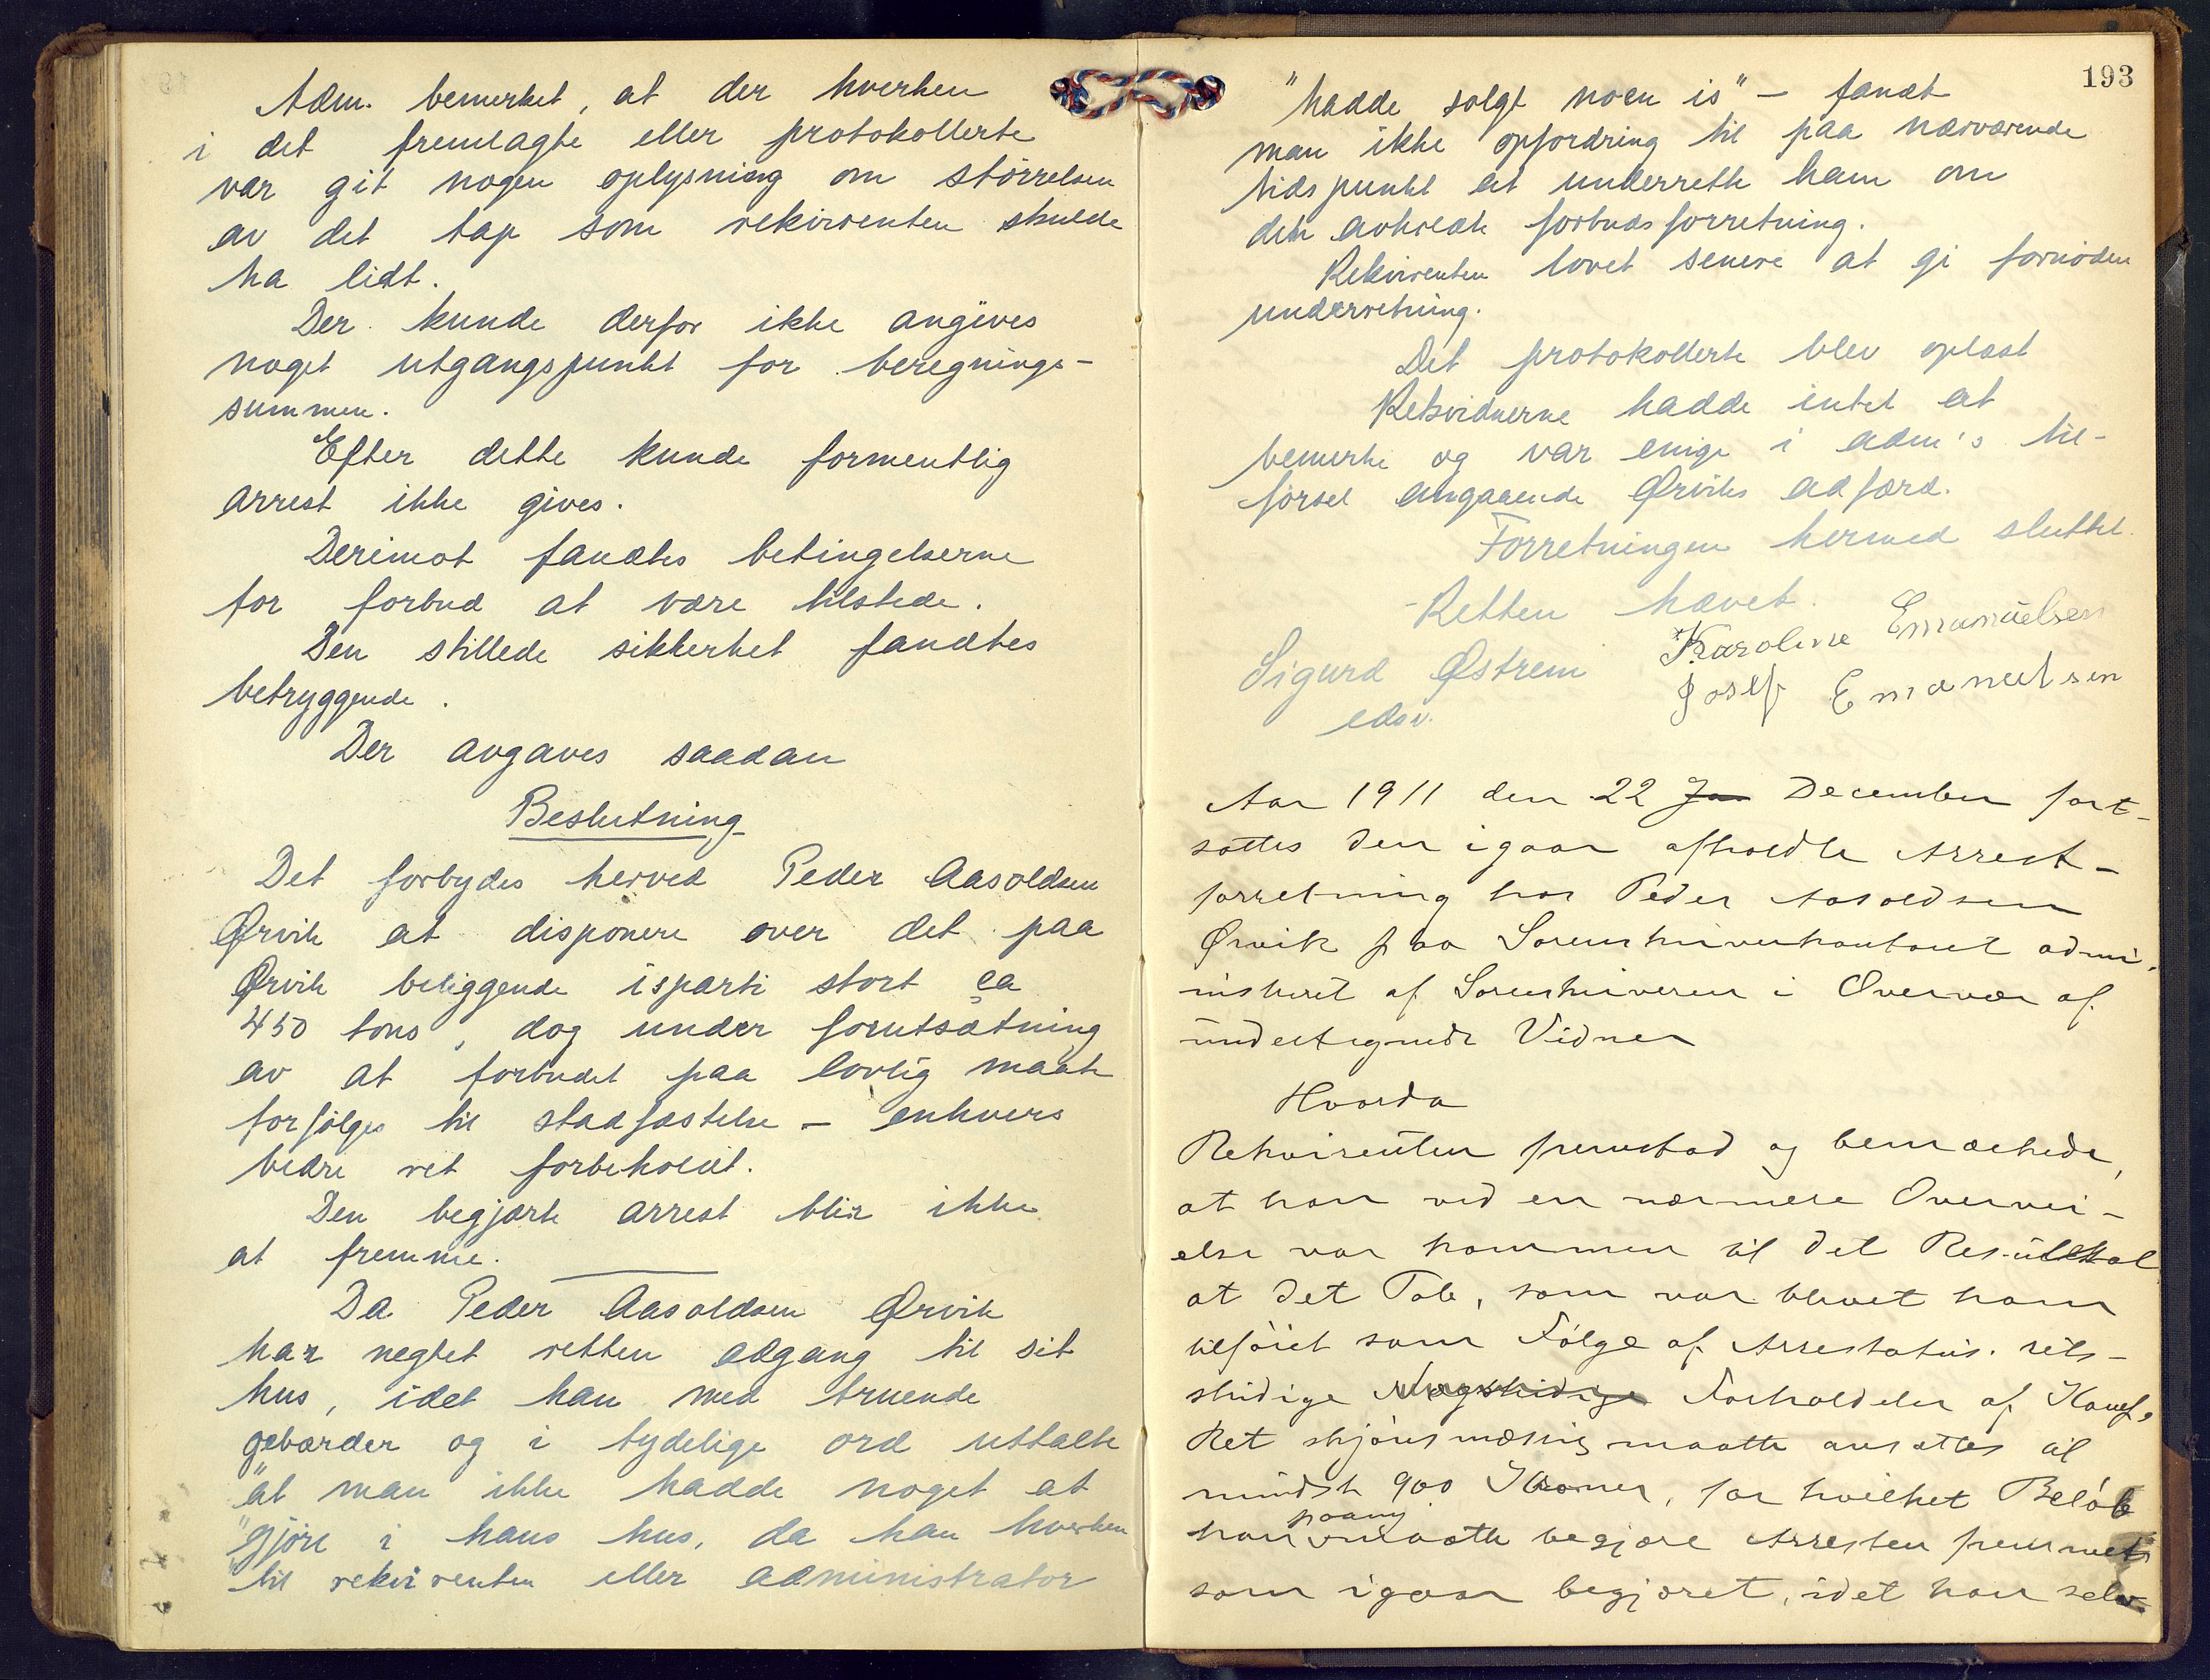 Adm. bemerket, at der hverken
i det fremlagte eller protokollerte
var git nogen oplysning om størrelsen
av det tap som rekvirenten skulde
ha lidt.
Der kunde derfor ikke angives
noget utgangspunkt for beregnings-
summen.
Efter dette kunde formentlig
arrest ikke gives.
Derimot fandtes betingelserne
for forbud at være tilstede.
Den stillede sikkerhet fandtes
betryggende.
Der avgaves saadan
Beslutning
Det forbydes herved Peder Aasoldsen
Ørvik at disponere over det paa
Ørvik beliggende isparti stort ca
450 tons, dog under forutsætning
av at forbudet paa lovlig maate
forfølges til stadfæstelse – enhvers
bedre ret forbeholdt.
Den begjærte arrest blir ikke
at fremme.
Da Peder Aasoldsen Ørvik
har negtet retten adgang til sit
hus, idet han med truende
gebærder og i tydelige ord uttalte
"at man ikke hadde noget at
"gjøre i hans hus, da han hverken
"til rekvirenten eller administrator
193
"hadde solgt noen is" – fandt
man ikke opfordring til paa nærværende
tidspunkt at underrette ham om
den avholdte forbudsforretning.
Rekvirenten lovet senere at gi fornøden
underretning.
Det protokollerte blev oplæst
Retsvidnerne hadde intet at
bemerke og var enige i adm's til-
førsel angaaende Ørviks adfærd.
Forretningen hermed sluttet.
Retten hævet.
Sigurd Østrem Karoline Emanuelsen
edsv. Josef Emanuelsen
Aar 1911 den 22 Ja December fort-
sattes den igaar afholdte Arrest-
forretning hos Peder Aasoldsen
Ørvik paa Sorenskriverkontoret admi-
nistreret af Sorenskriveren i Overvær af
undertegnede Vidner
Hvorda
Rekvirenten fremstod og bemærkede,
at han ved en nærmere Overvei-
else var kommen til det Resultat
at det Tab, som var blevet ham
tilføiet som Følge af Arrestatus. rets-
stridige Forholdelse af Kauf.
Ret skjønsmæssig maatte ansættes til
mindst 900 Kroner, for hvilket Beløb
han paany maatte begjære Arresten fremmet
som igaar begjæret, idet han selv